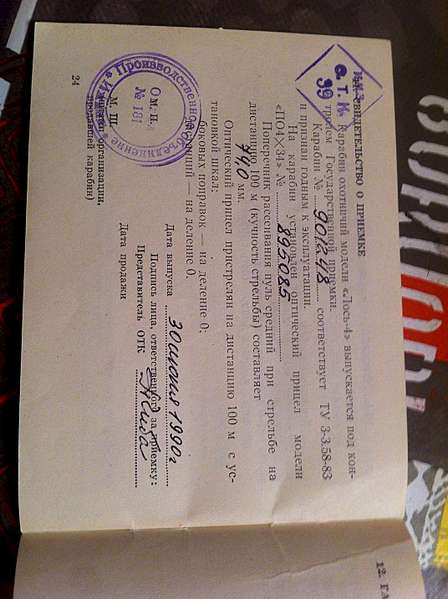 СВИДЕТЕЛЬСТВО О ПРИЕМКЕ
Карабин охотничий модели «Лось-4» выпускается под кон-
тролем Государственной приемки.
Карабин № 9012418 соответствует ТУ 3-3.58-83
и признан годным к эксплуатации.
На карабин установлен оптический прицел модели
«ПО4×34» № 895085
Поперечник рассеивания пуль средний при стрельбе на
дистанцию 100 м (кучность стрельбы) составляет
мм.
Оптический прицел пристрелян на дистанцию 100 м с ус-
тановкой шкал:
боковых поправок — на деление 0;
— на деление 0.
Дата выпуска 30 июля 1990г
Подпись лица, ответственного за приемку:
Представитель ОТК
Дата продажи
М. П.
организации,
продавшей карабин)
24
О. Т. К.
39
Производственное объединение
№ 181
12. ГА